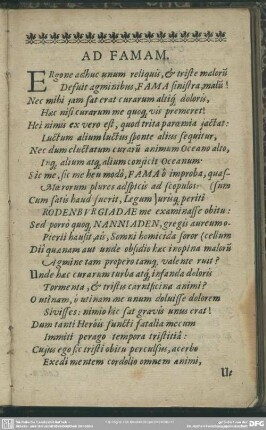 AD FAMAM.
ERgone adhuc unum reliquis, & triste malorũ
Defuit agminibus, FAMA sinistra, malũ!
Nec mihi jam sat erat curarum altiq; doloris,
Hæc nisi curarum me quoq; vis premeret!
Hei nimis ex vero est, quod trita paræmia jactat:
Luctum alium luctus sponte alius sequitur,
Nec dum eluctatum curarũ animum Oceano alto,
Inq; alium atq; alium conjicit Oceanum.
Sic me, sic me heu modò, FAMA ô improba, quas-
Majorum plures adspicis ad scopulos: (sum
Cum satis haud fuerit, Legum Jurisq; periti
RODENBVRGIADAE me examinasse obitu:
Sed porrò quoq; NANNIADEN, gregis aureum o-
Pierii hausit ais, Somni homicida soror (cellum
Dii quanam aut unde obsidio hæc inopina malorũ
Agmine tam propero tamq; valente ruit?
Unde hæc curarum turba atq; infanda doloris
Tormenta, & tristis carnificina animi?
O utinam, ô utinam me unum doluisse dolorem
Sivisses: nimio hic sat gravis unus erat!
Dum tanti Herôis functi fatalia mecum
Immiti perago tempora tristitiâ:
Cujus ego sic tristi obitu perculsus, acerbo
Exedi mentem cordolio omnem animi,